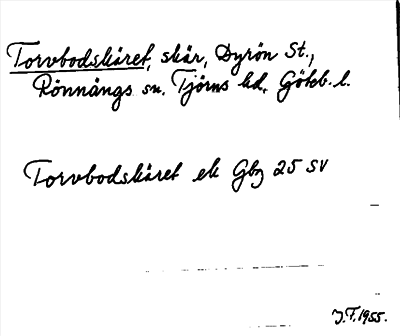 Torvbodskäret, skär, Dyrön St.,
Rönnängs sn. Tjörns hd. Göteb. l.
Torvbodskäret ek Gbg 25 SV
J.F. 1955.